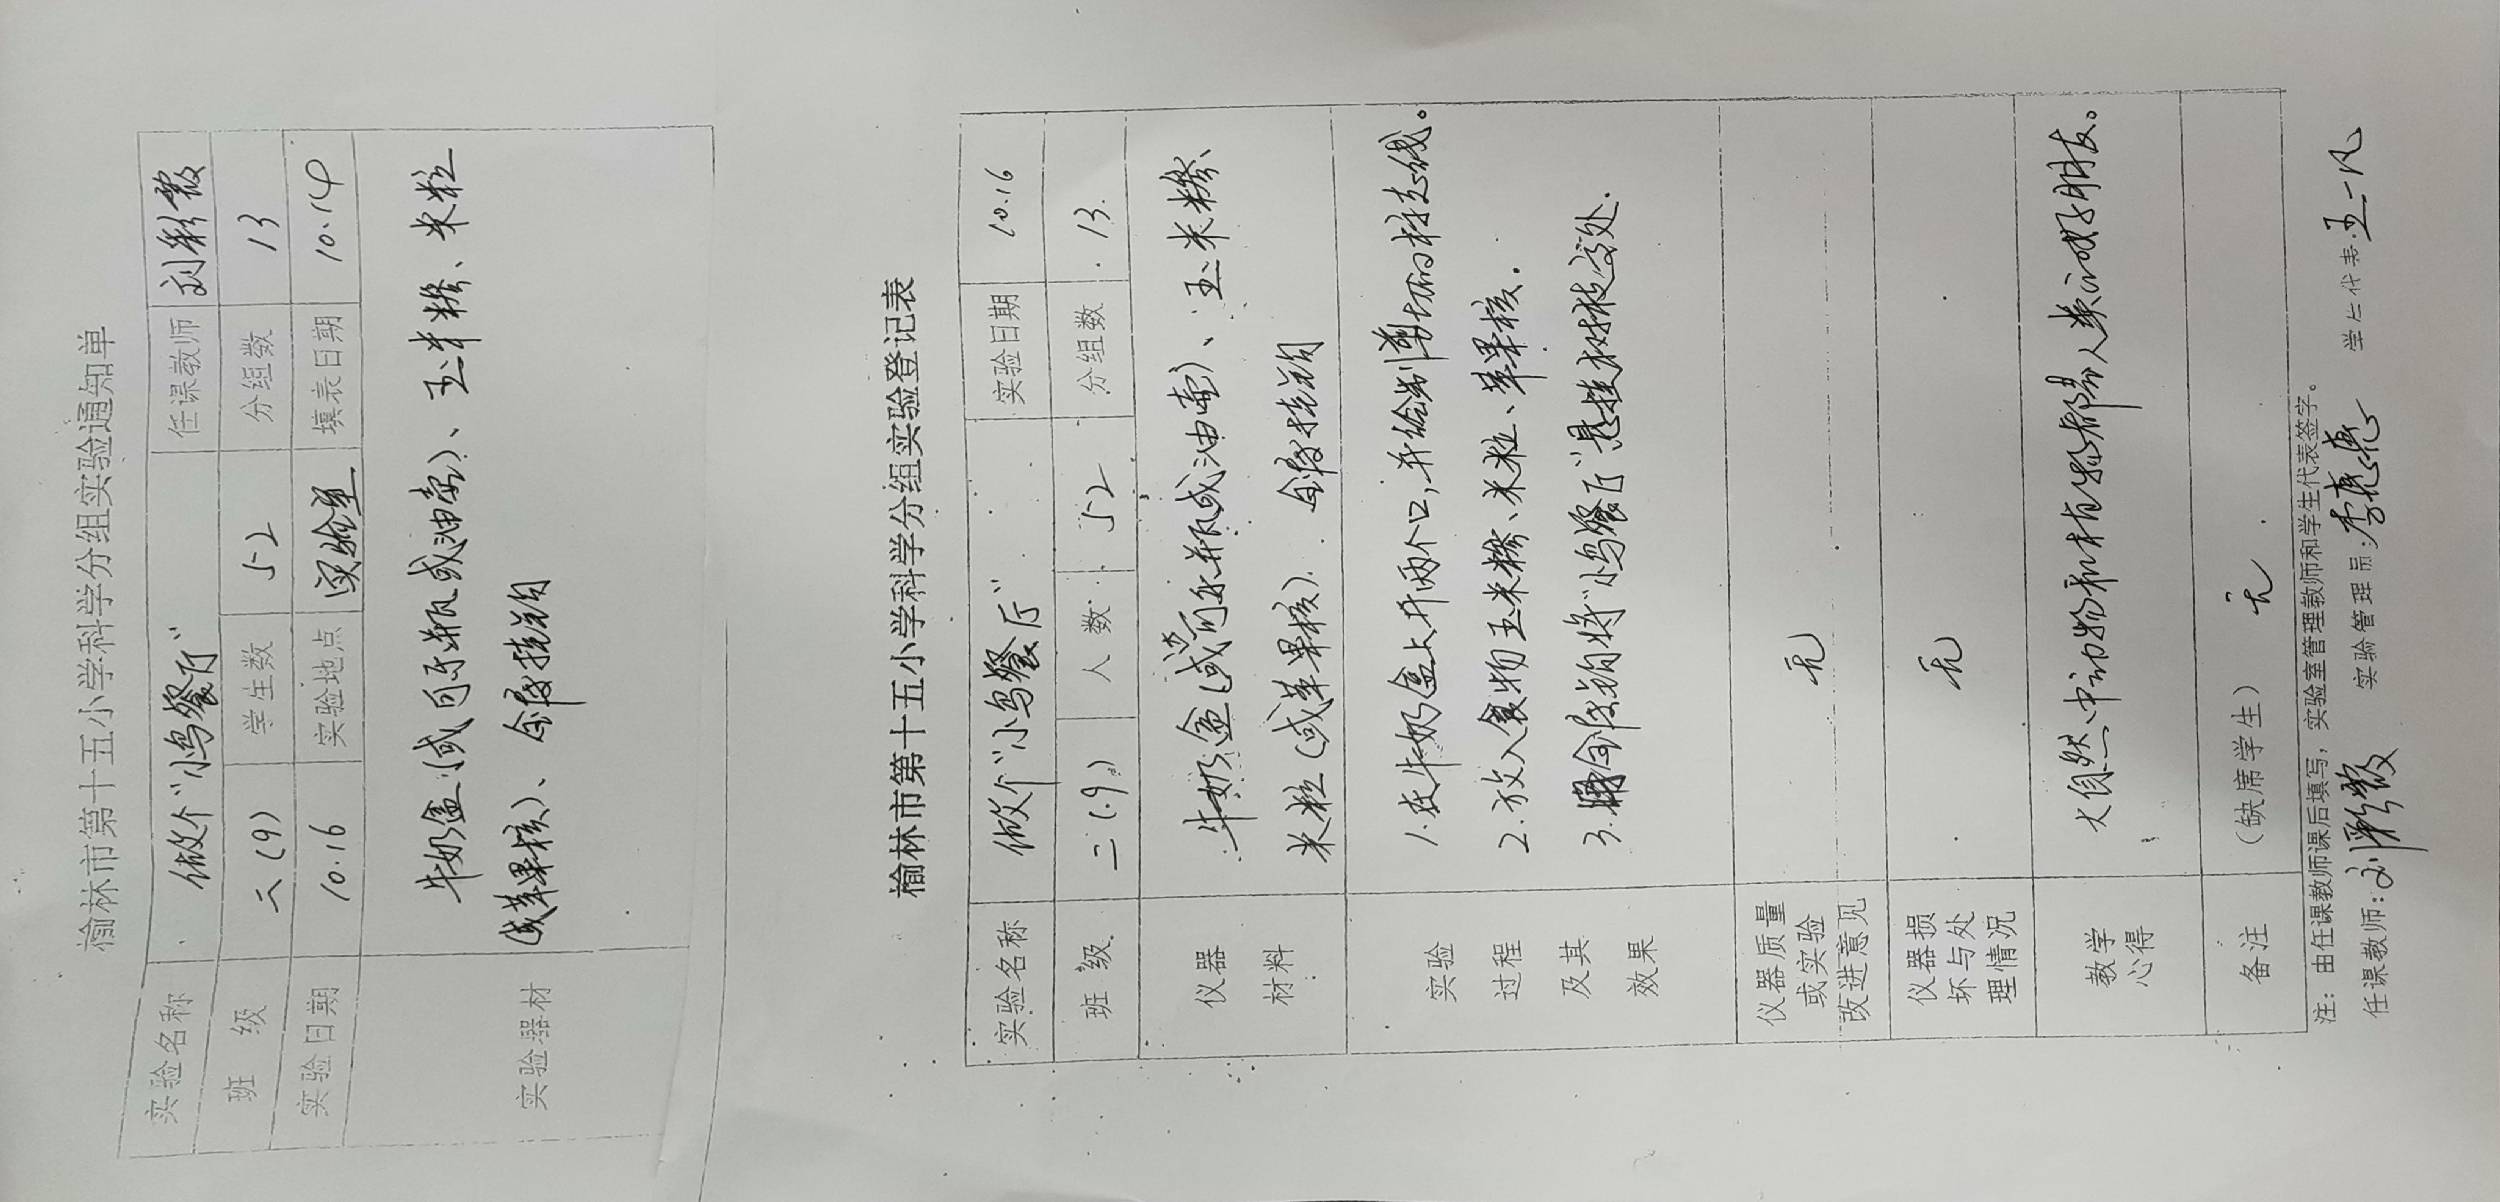 榆林市第十五小学科学分组实验通知单
实验名称 做个“小鸟餐厅” 任课教师
班 级 二(9) 学生数 52 分组数 13
实验日期 10.16 实验地点 实验室 填表日期 10.14
实验器材 牛奶盒(或可乐瓶或油壶)、玉米糁、米粒
(或苹果核)、
榆林市第十五小学科学分组实验登记表
实验名称 做个“小鸟餐厅” 实验日期 10.16
班 级 二(9) 人 数 52 分组数 13
仪器 牛奶盒(或可乐瓶或油壶)、玉米糁、
材料 米粒(或苹果核).
实验 1.在牛奶盒上开两个口,并绘制剪切的标志线。
过程 2.放入食物玉米糁、米粒、苹果核.
及其 3.用 将“小鸟餐厅”悬挂树枝 处.
效果
仪器质量
或实验 无
改进意见
仪器损
坏与处 无
理情况
教学 大自然中动物和植物都是人类的好朋友。
心得
备注 (缺席学生) 无
注:由任课教师课后填写,实验室管理教师和学生代表签字。
任课教师: 实验管理员: 学生代表:王一凡